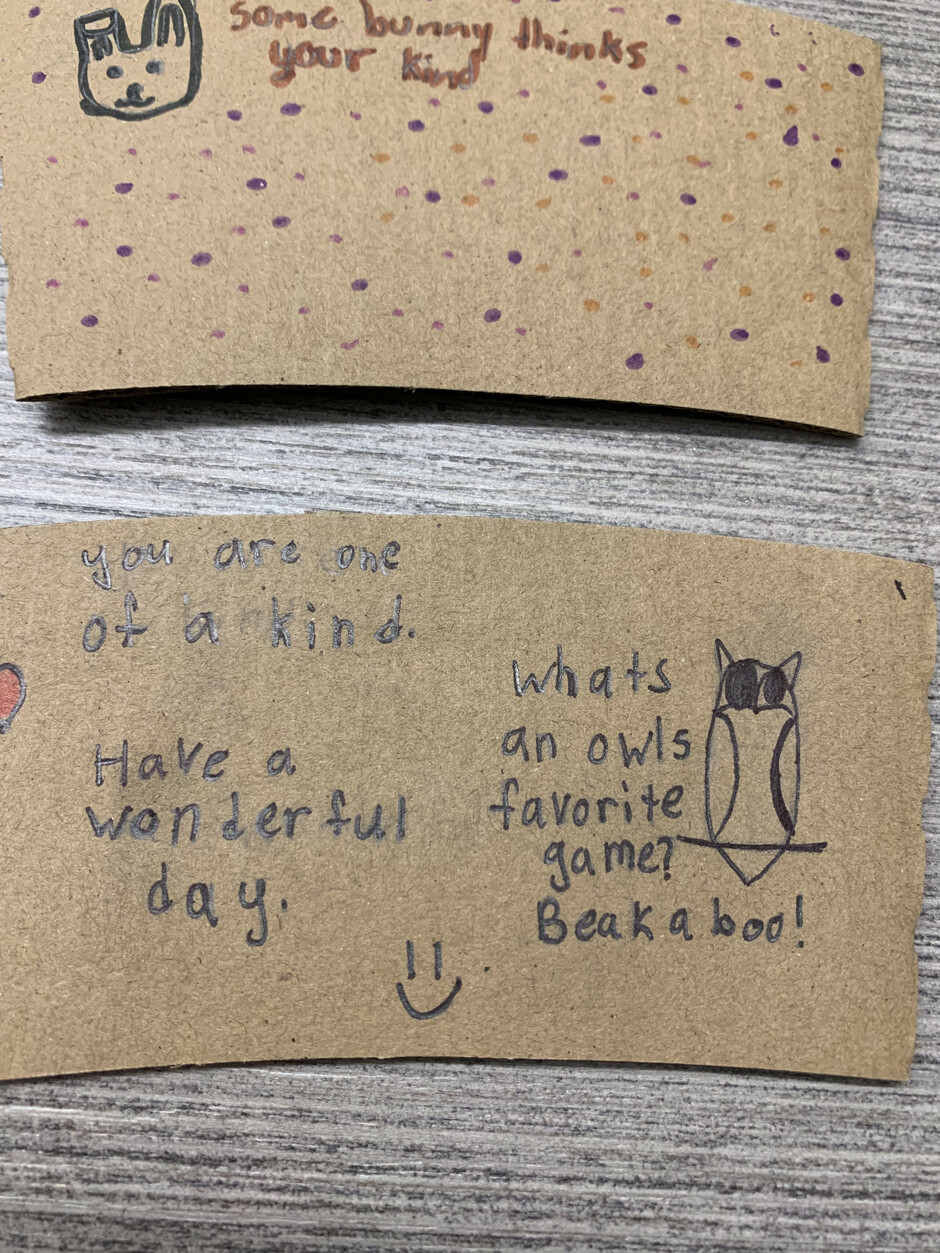 some bunny thinks
your kind
you are one
of a kind.
Have a
wonderful
day.
whats
an owls
favorite
game?
Beak a boo!